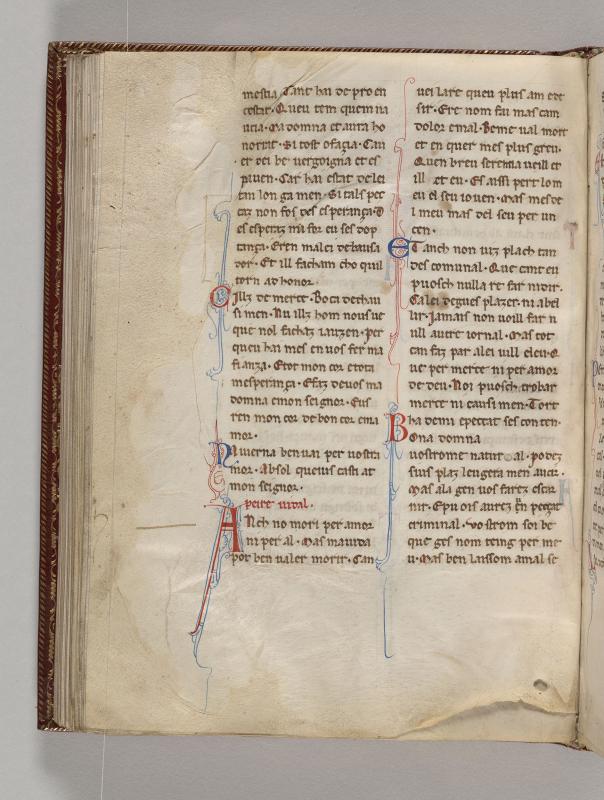 mesura. Tant hai de pro en
cobrar. Queu tem quem na
ucia. Ma domna et aura ho
norrat. Si tost ofacia. Cau
er dei be uergoigna et es
piuen. Car hai estat de lei
tan lon ga men. Si tals pec
caz non fos des esperanza. D
es esperaz mi for eu ses dop
tanza. Eren malei de bausa
dor. Et ill facham cho quil
torn ad honor.
Cillz de merce. Bocs dechau
si men. Au illz hom nous ue
que nol fachaz iauzen. per
queu hai mes en uos fer ma
fianza. Et ot mon cor et ota
mesperança. Efaz de uos ma
domna e mon seignor. Eus
ren mon cor de bon cor em a
mor.
Aluerna ben uai per uostra
mor. Absol queius cast at
mon seignor.
Peire uidal.
Anch no mori per amor
ni per al. Mas ma uida
pot ben ualer morir. Can
uei la re queu plus am e de
sir. Ere nom fai mas cam
dolor e mal. Beme ual mort
et en quer mes plus greu.
Quen breu serem ia ueill et
ill et eu. Es aissi pert lom
eu el seu iouen. Mas mes de
l meu mas del seu per un
cen.
Et anch non uiz plach tan
des comunal. Que cant eu
puosch nulla re far nidir.
Calei degues plazer ni abel
lir. Jamais non uoill far n
ull autre iornal. Mas tot
can faz par alei uill e leu. Q
ue per merce ni per amor
de deu. Noi puosch trobar
merce ni causi men. Tort
ha de mi e peccat ses conten.
Bona domna
uostrome natural. podez
sius plaz leugera men aucir.
Mas ala gen uos farez escar
nir. Epuois aurez en peccat
criminal. Vostrom soi be
que ges nom teing per me
u. Mas ben laissom a mal se